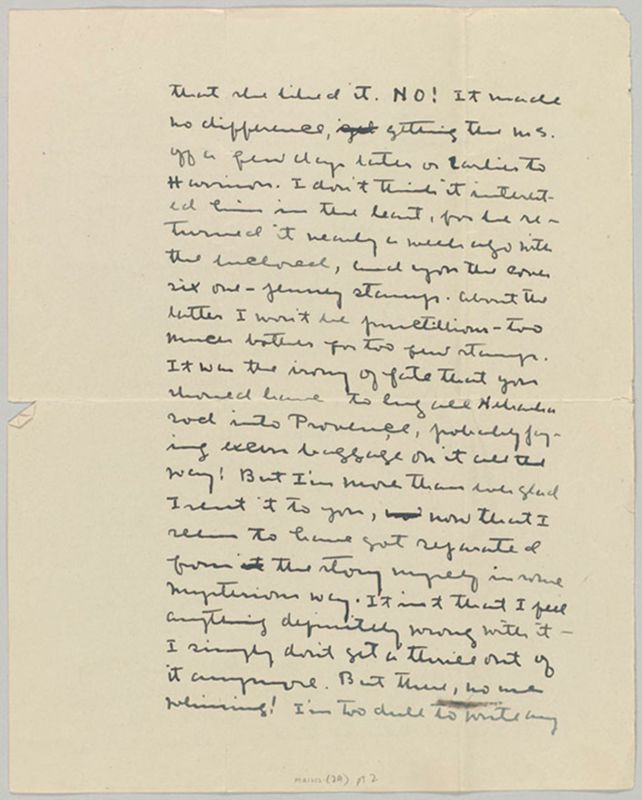 that she liked it. NO! It made
no difference, getting the ms.
off a few days later or earlier to
Harrison. I don't think it interest-
ed him in the least, for he re-
turned it nearly a week ago with
the inclosed, and upon the cover
six one-penny stamps. About the
latter I won't be punctillious - too
much bother for too few stamps.
It was the irony of fate that you
should have to lug all Nebraska
sod into Provence, probably pay-
ing excess baggage on it all the
way! But I'm more than ever glad
I sent it to you, now that I
seem to have got separated
from the story myself in some
mysterious way. It isn't that I feel
anything definitely wrong with it -
I simply don't get a thrill out of
it anymore. But there, no use
whining! I'm too dull to write any
(2A) pt 2